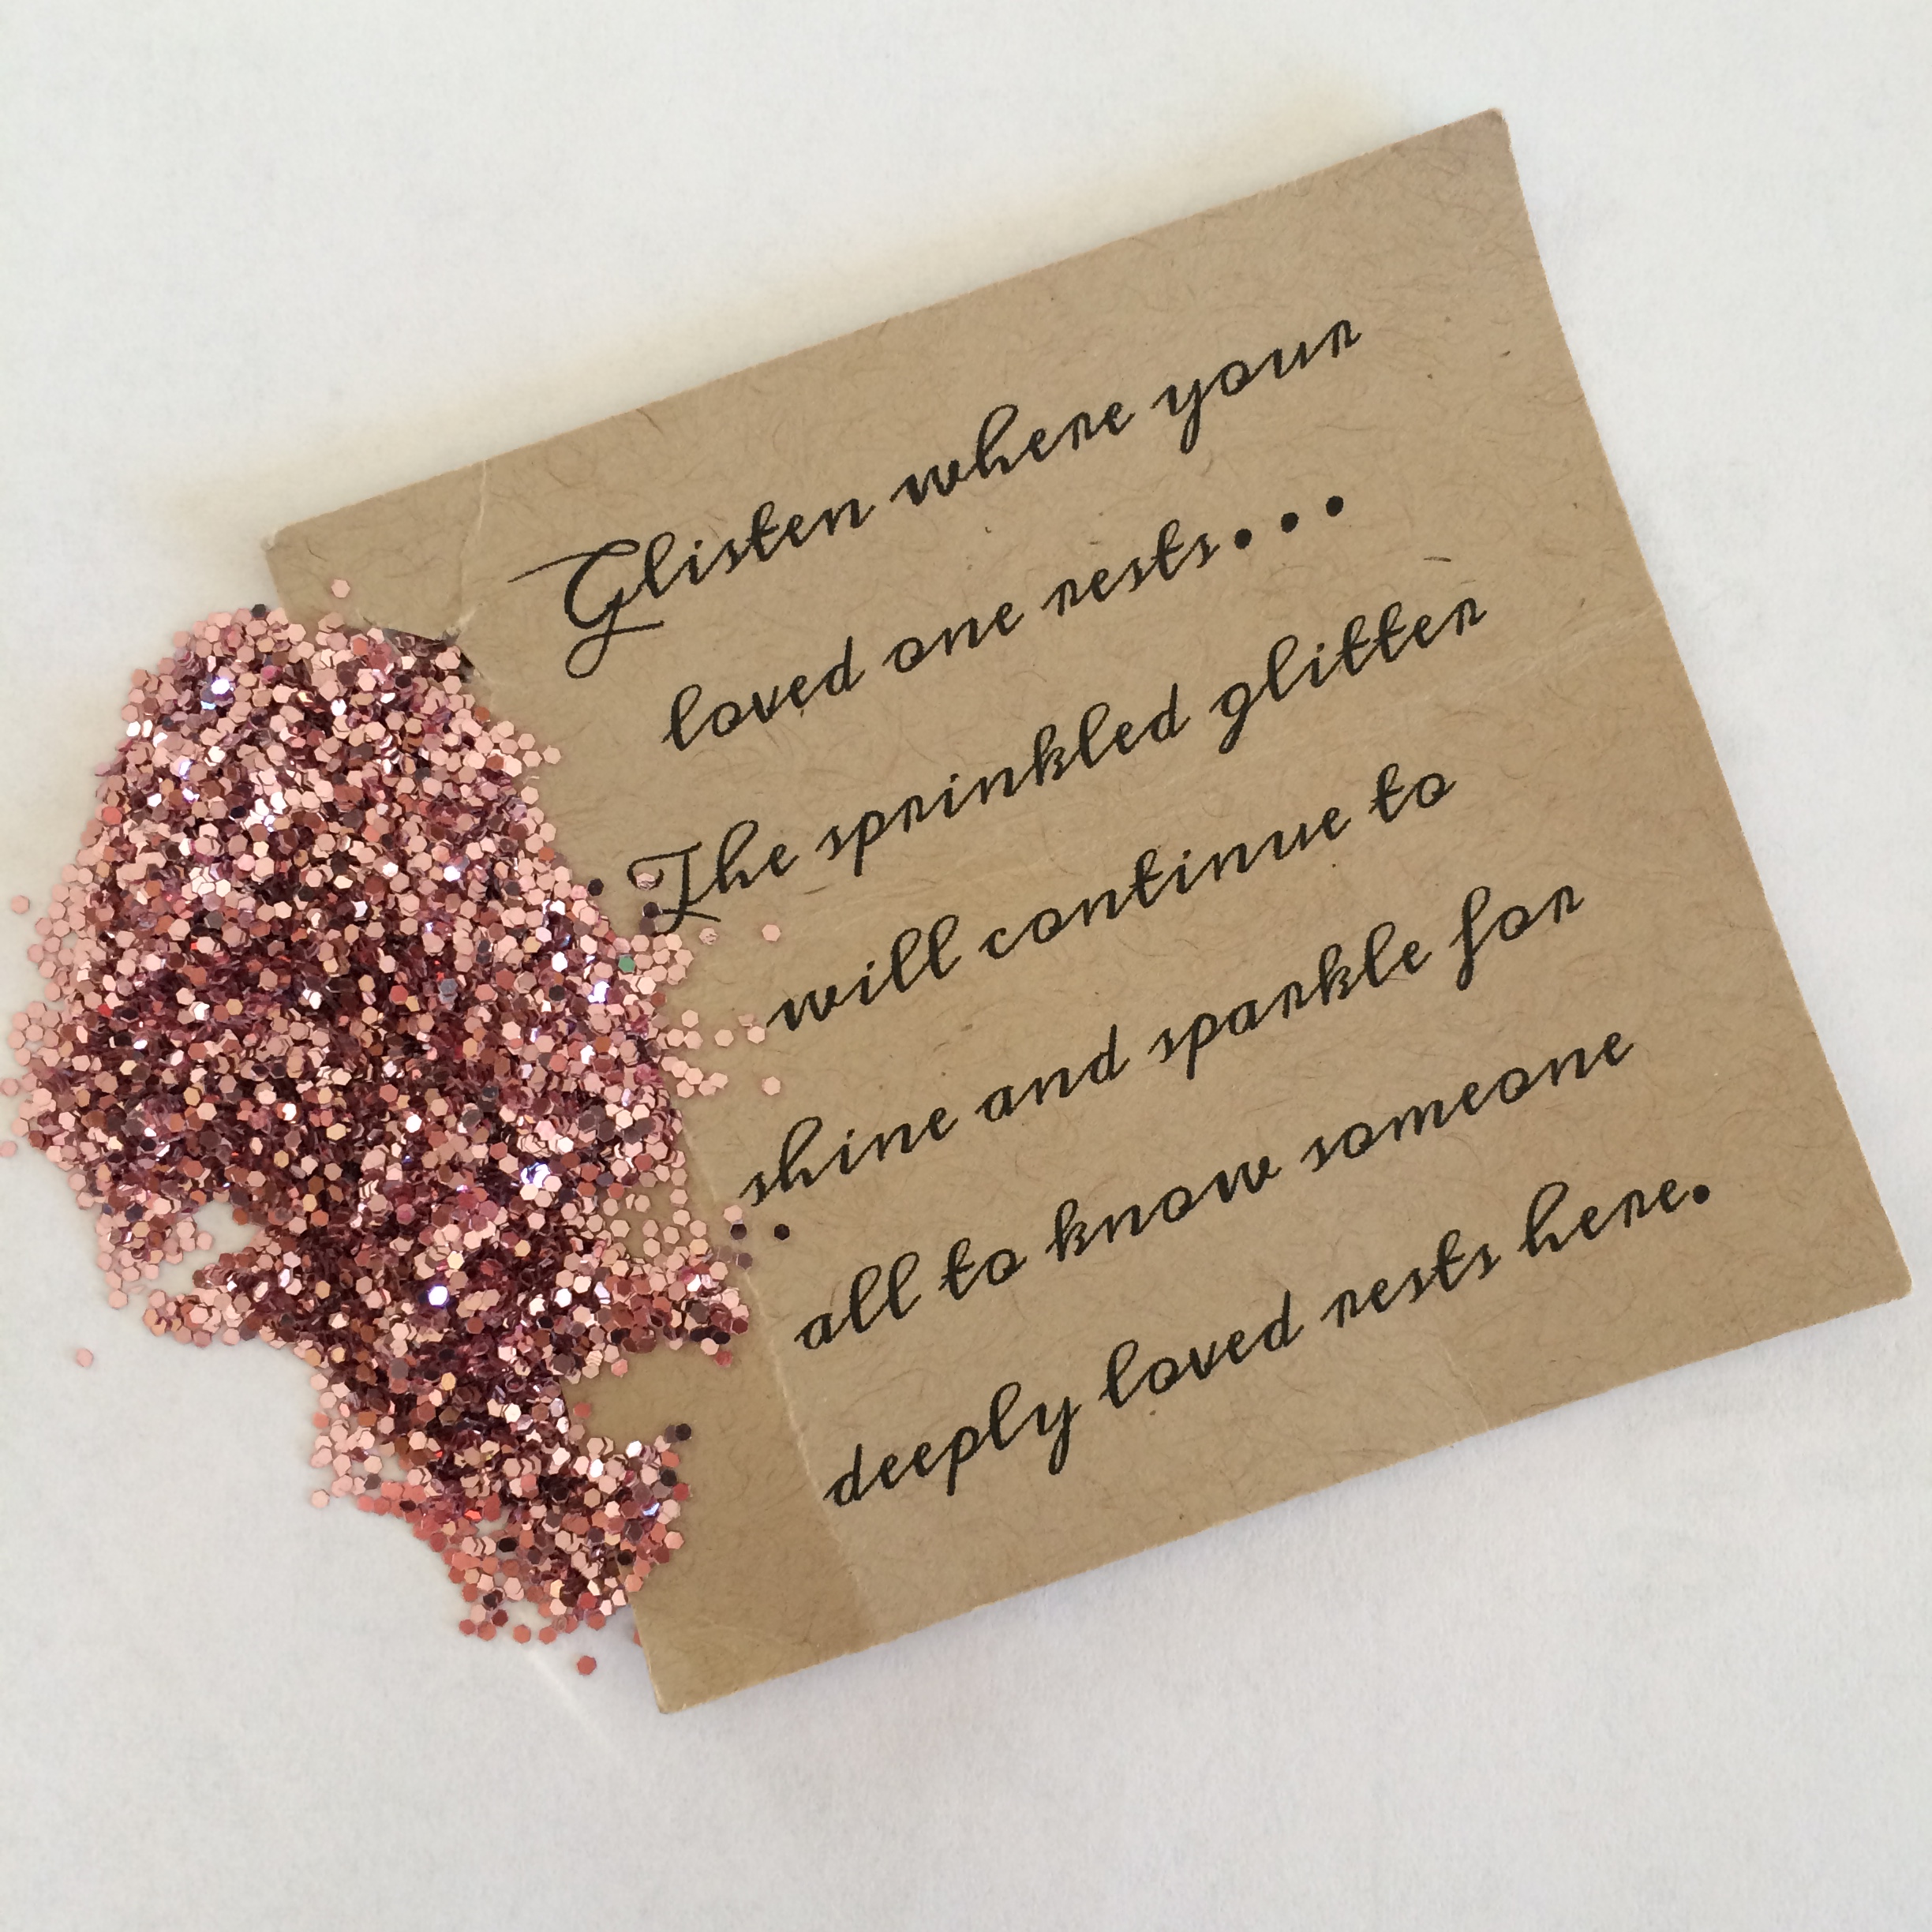 Glisten where your
loved one rests...
The sprinkled glitter
will continue to
shine and sparkle for
all to know someone
deeply loved rests here.